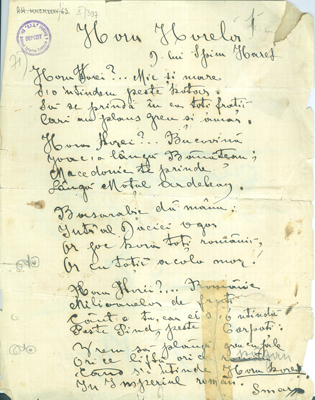 Hora Horelor
D. lui Spiru Haret
Hora Horei?... Mic și mare
S'o 'ntindem peste hotar.
Să se prindă în ea toți frații
Cari au plâns greu și amar.
Hora Horei?... Bucovină
Joac'o lângă Bănățean;
Macedonie te prinde
Lângă Moțul Ardelean.
Basarabie dă mâna;
Intră'l Daciei
Or joc hora toți românii,
Or cu toții acolo mor!
Hora Horei?... Românie
Milioanelor de frați
Cântă o tu, car ei s'o 'ntindă
Peste Pind, peste Carpați:
Vrem să plângă greu cu jale
Ori ce liftă ori ce
Când s'o 'ntinde Hora horelor
In Imperiul român.
Smara